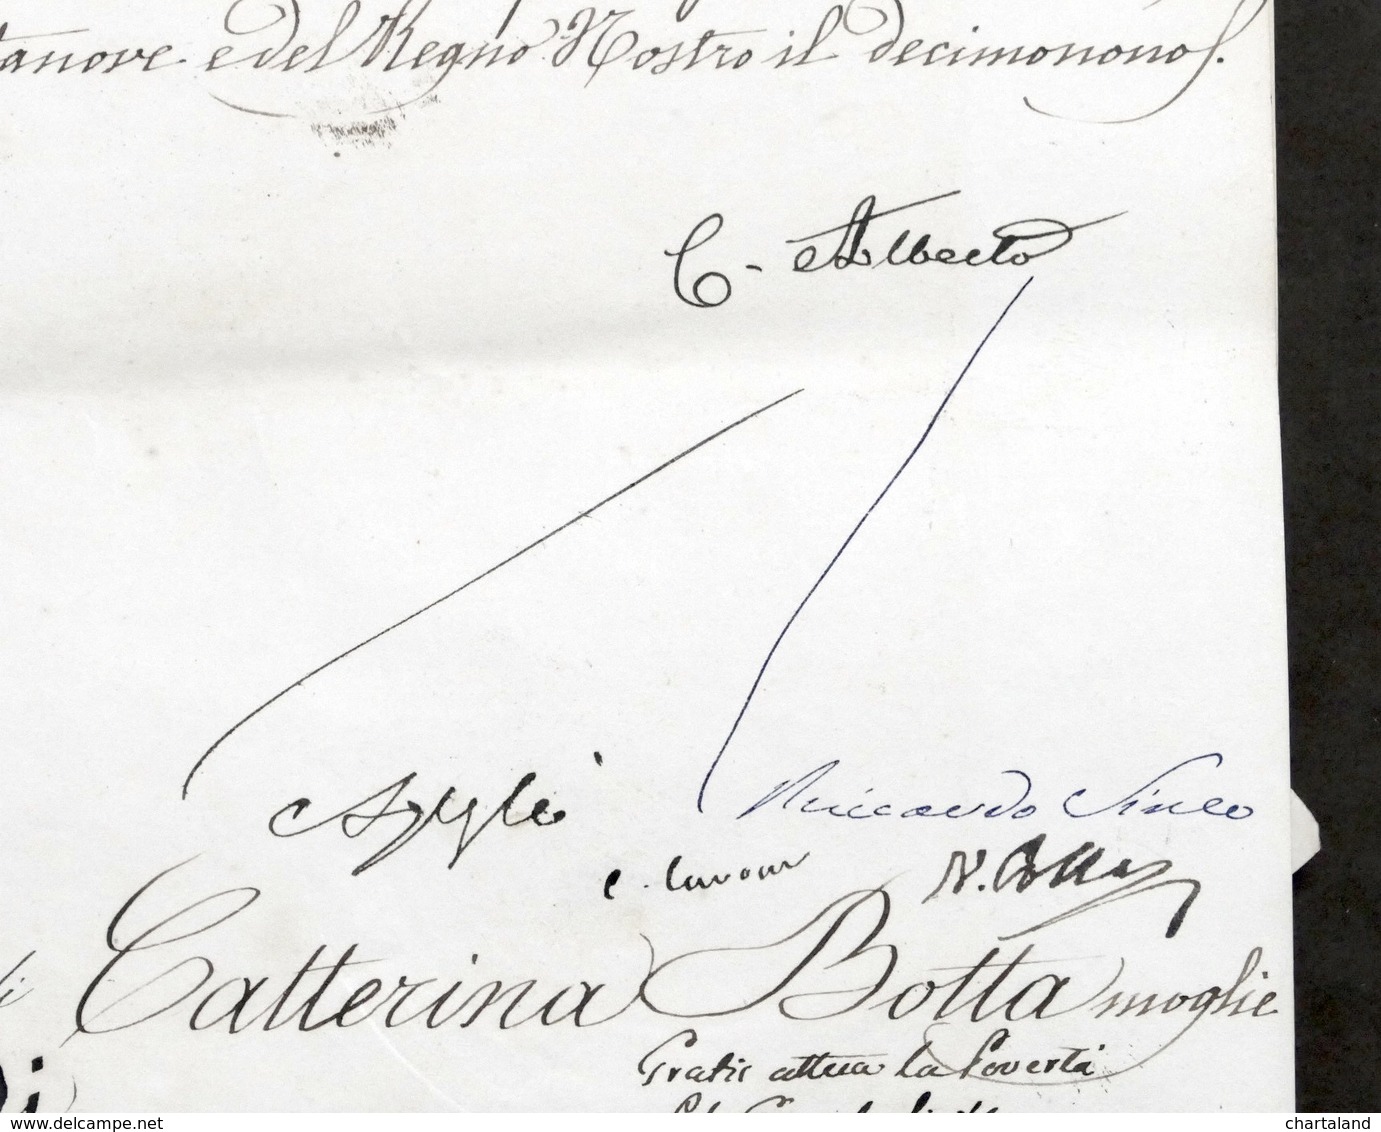 tanove e del Regno Nostro il decimonono.
C. Alberto
Riccardo Sineo
C. Cavour
Catterina Botta moglie
Gratis attesa la Povertà
www.delcampe.net
chartaland